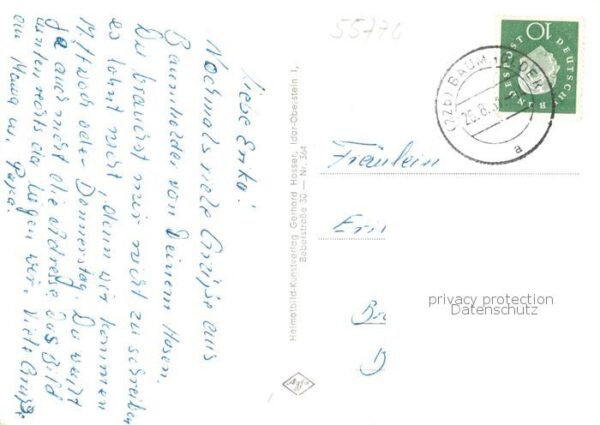 Liebe Erika!
Nochmals viele Grüße aus
Baumholder von Deinem Hasen.
Du brauchst mir nicht zu schreiben
es lohnt nicht, denn wir kommen
Mittwoch oder Donnerstag. Du weißt
ja auch nicht die Adresse. Das Bild
unten rechts da liegen wir. Viele Grüße
an Mama u. Papa.
Heimatbild-Kunstverlag Gerhard Hosser, Idar-Oberstein 1,
Bobelstraße 30 — Nr. 364
Agfa
55776
(22b) BAUMHOLDER
a
DEUTSCHE
BUNDESPOST
10
Fräulein
Eri
B
privacy protection
Datenschutz